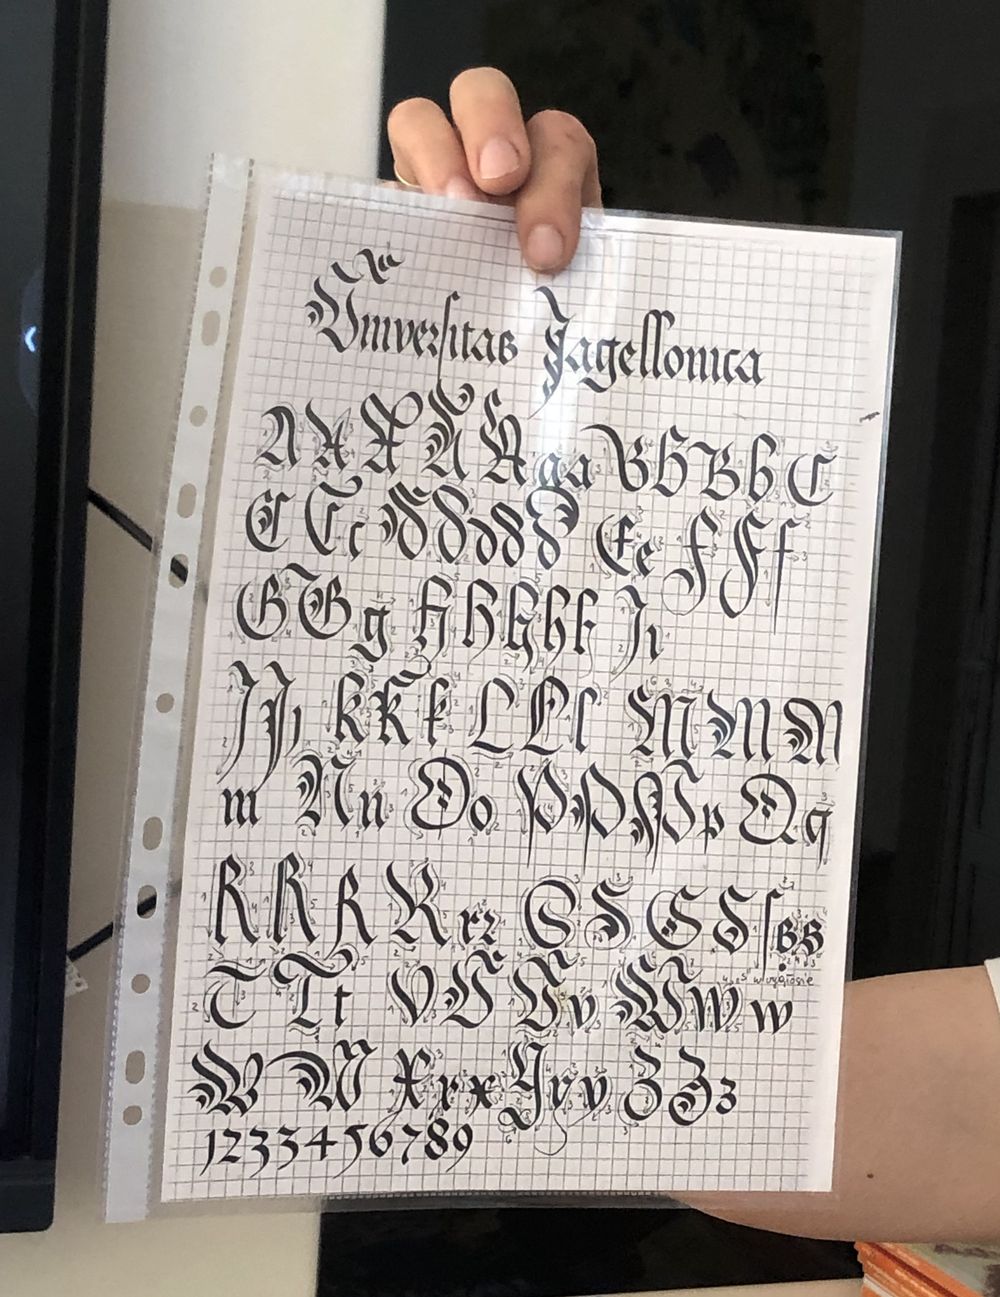 Universitas Jagellonica
A A A A A a a B B B b C
C C c D D d d D E e F F f
G G g H H h h h J i
J J j K K k L L l M M M
m N n O o P P P p Q q
R R R R r z S S S S ſ s s
w wygłosie
T T t V V V v W W w
W W X x x Y y y Z Z z
1 2 3 3 4 5 6 7 8 9